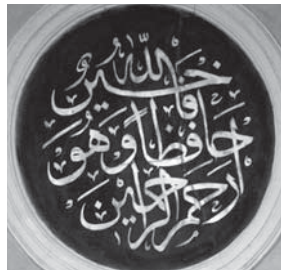 فَاللّٰهُ خَيْرٌ
حَافِظًا وَهُوَ
أَرْحَمُ الرَّاحِمِينَ